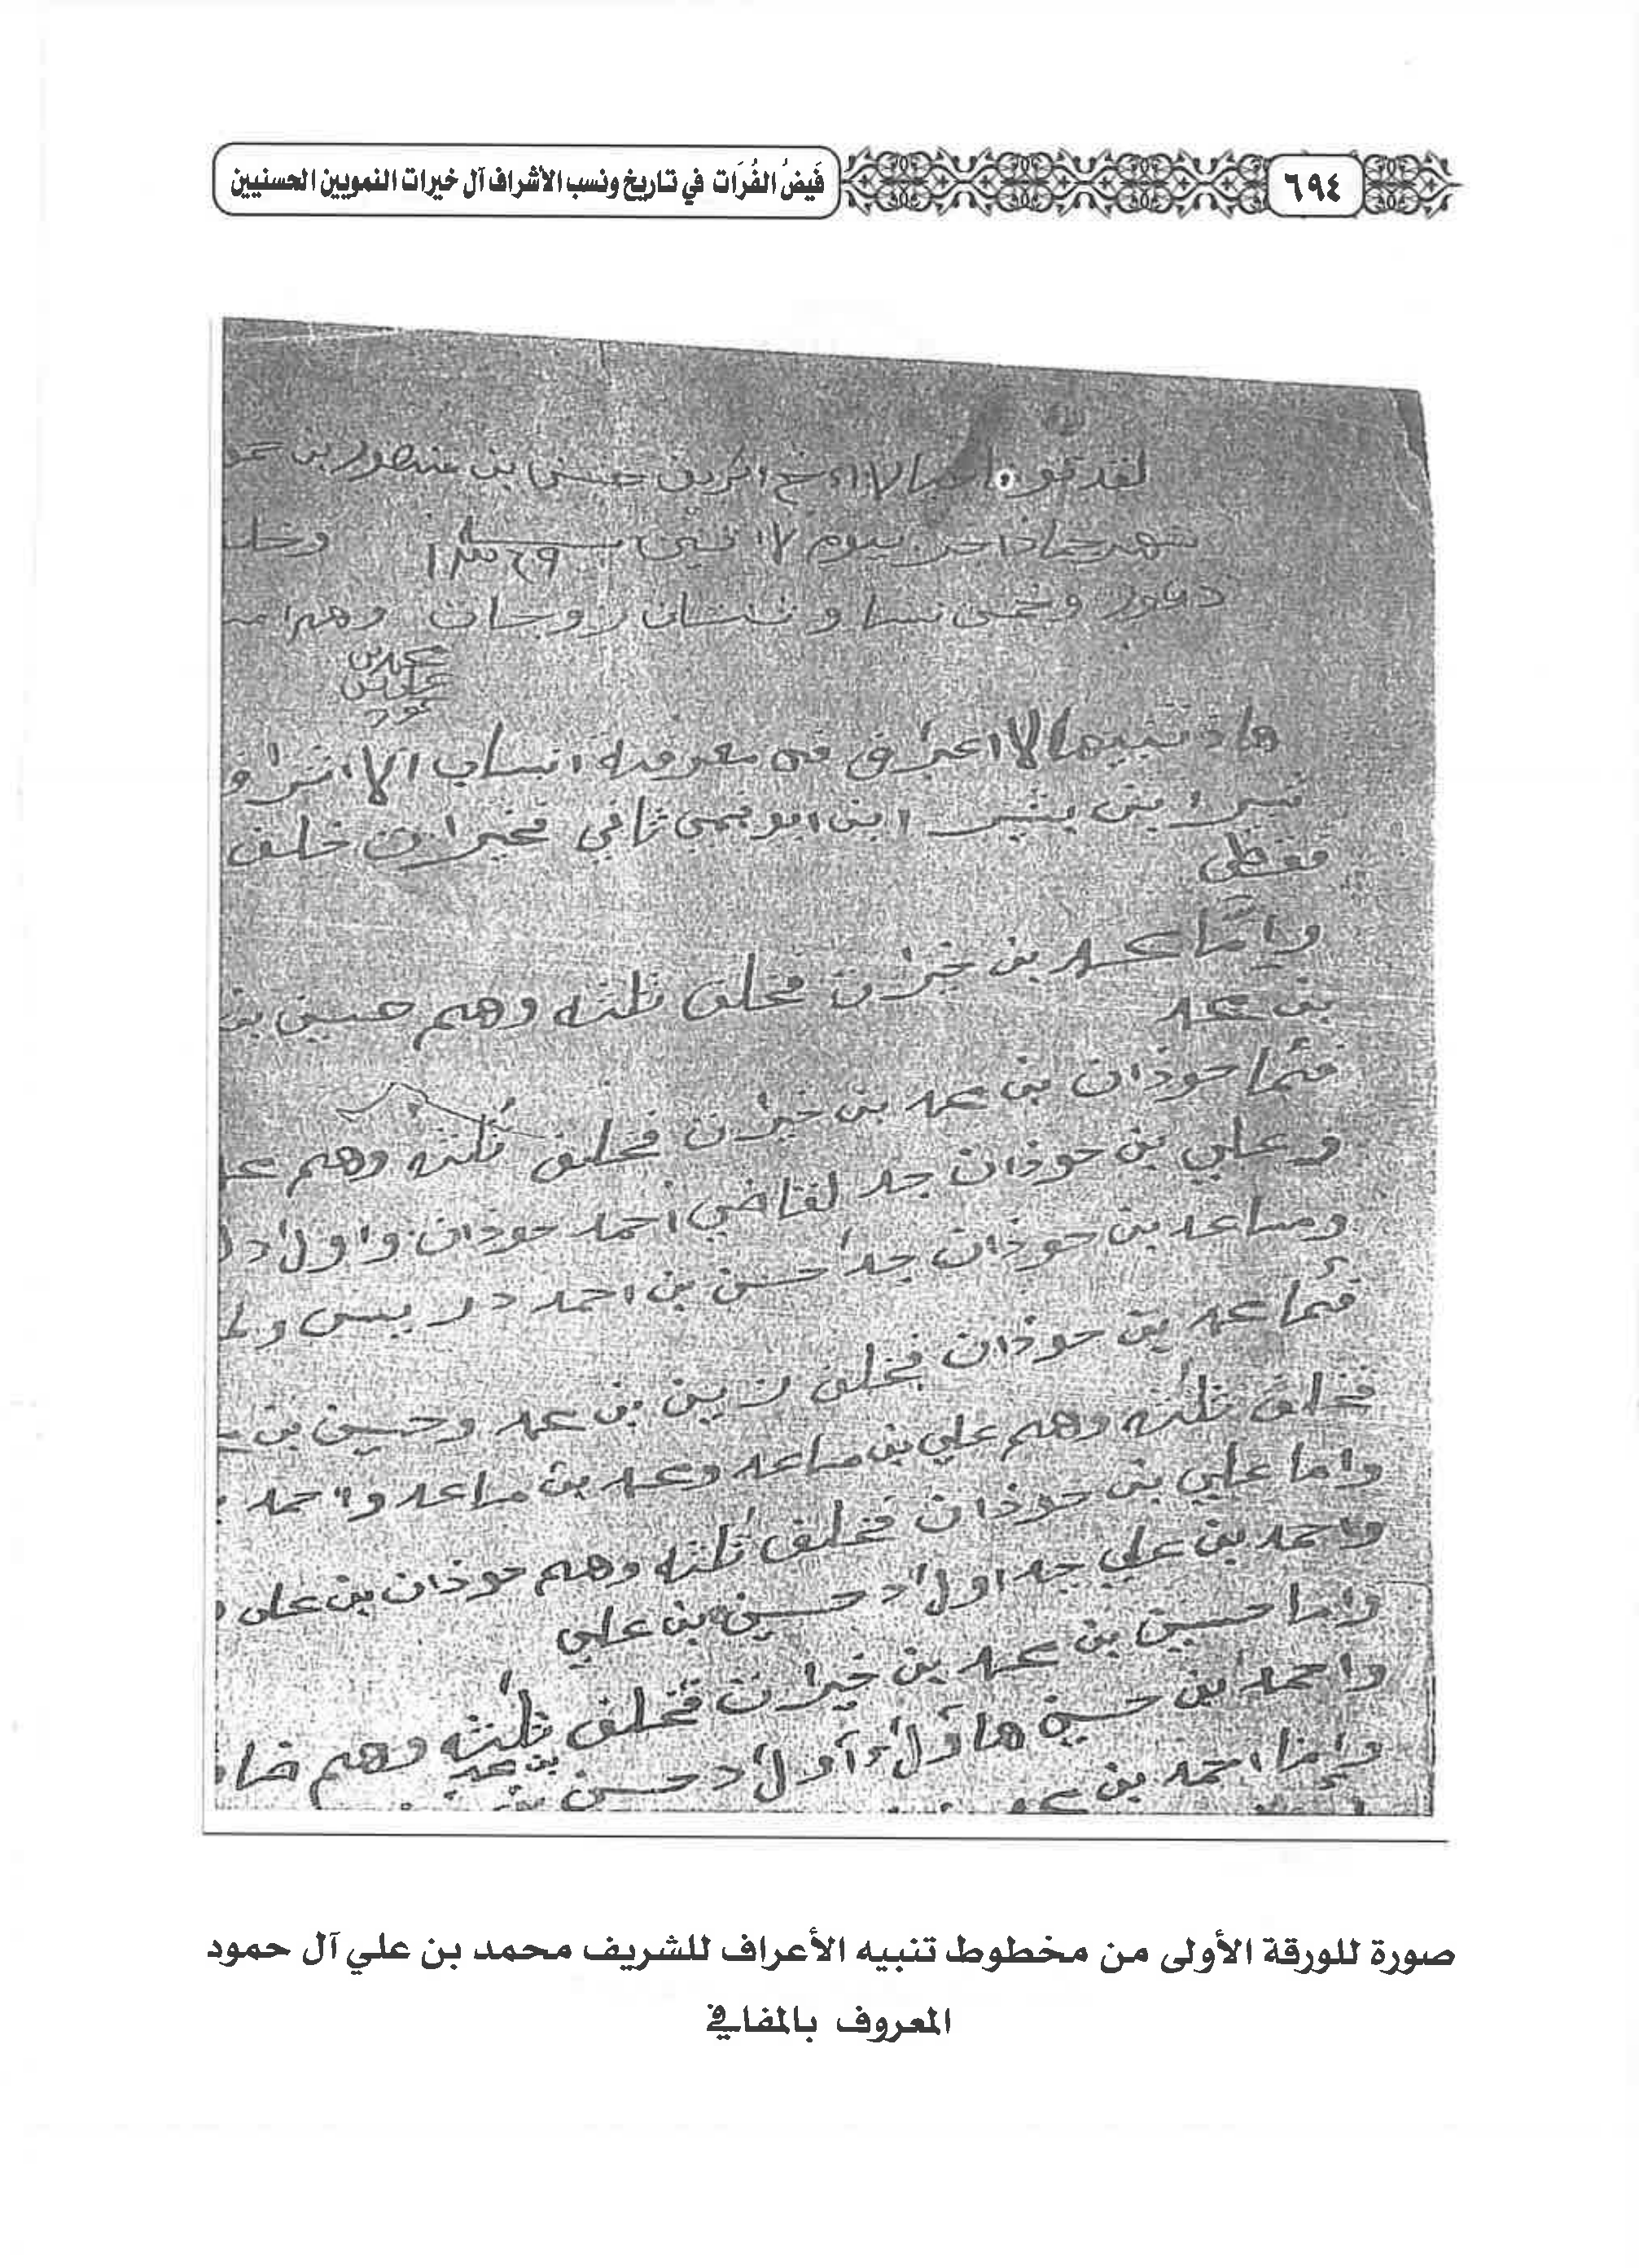 فَيضُ الفُرَات في تاريخ ونسب الأشراف آل خيرات النمويين الحسنيين
٦٩٤
حسن بن منصور بن
شهر جماد اخر يوم الاثنين ١٣٦٩ وخلف
وخمس نسا وثنتان زوجات وهم
محمد بن
علي بن
هاذ تنبيه الاعراف في معرفة انساب الاشراف
بن بشير ابن ابو نمي ثاني فخيرات خلف
واما محمد بن خيرات فخلف ثلثه وهم حسين بن
بن محمد
فئما حوذان بن محمد بن خيرات فخلف ثلثه وهم
وعلي بن حوذان جد لقاضي احمد حوذان واولاد
ومساعد بن حوذان جد حسن بن احمد دريبس
فئما محمد بن حوذان فخلف زين بن محمد وحسين بن
فخلف ثلثه وهم علي بن مساعد ومحمد بن مساعد واحمد
واما علي بن حوذان فخلف ثلثه وهم حوذان بن علي
واحمد بن علي جد اولاد حسين بن علي
واما حسين بن محمد بن خيرات فخلف ثلثه وهم
واحمد بن حسين هاؤلاء اولاد حسين بن محمد
واما احمد بن
صورة للورقة الأولى من مخطوط تنبيه الأعراف للشريف محمد بن علي آل حمود
المعروف بالمفافي